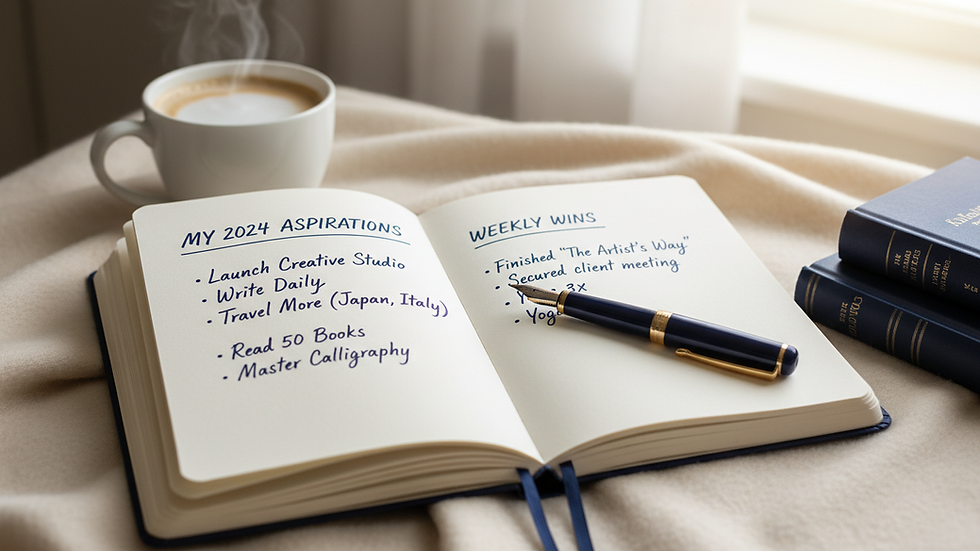 MY 2024 ASPIRATIONS
• Launch Creative Studio
• Write Daily
• Travel More (Japan, Italy)
• Read 50 Books
• Master Calligraphy
WEEKLY WINS
• Finished "The Artist's Way"
• Secured client meeting
• 3x
•